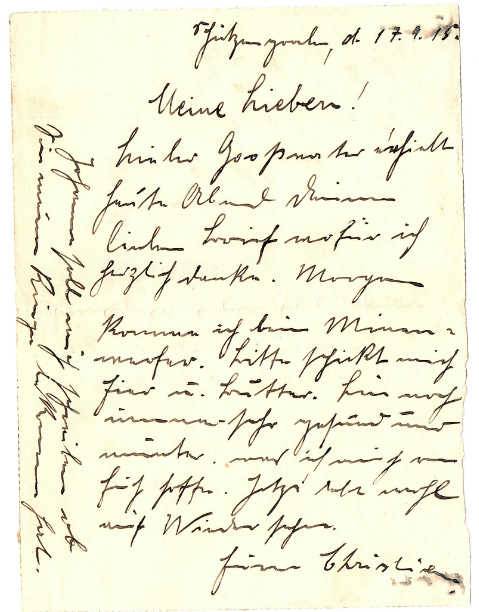 Schützengraben, d. 17.9.15.
Meine Lieben!
Lieber Großvater erhielt
heute Abend deinen
lieben Brief wofür ich
herzlich danke. Morgen
komme ich beim Minen=
werfer. Bitte schickt mich
Eier u. Butter. Bin noch
immer sehr gesund und
munter. was ich auch von
Euch hoffe. Jetzt lebt wohl
auf Wiedersehen.
Euer Christian
Johanna soll mich schreiben ob
sie meinen Ringe bekommen hat.